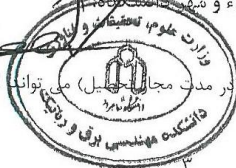 ء و شهر دانشکده،
وزارت علوم، تحقیقات و فناوری
در مدت مجاز تحصیل) می توانند
دانشکده مهندسی برق و رباتیک
۳